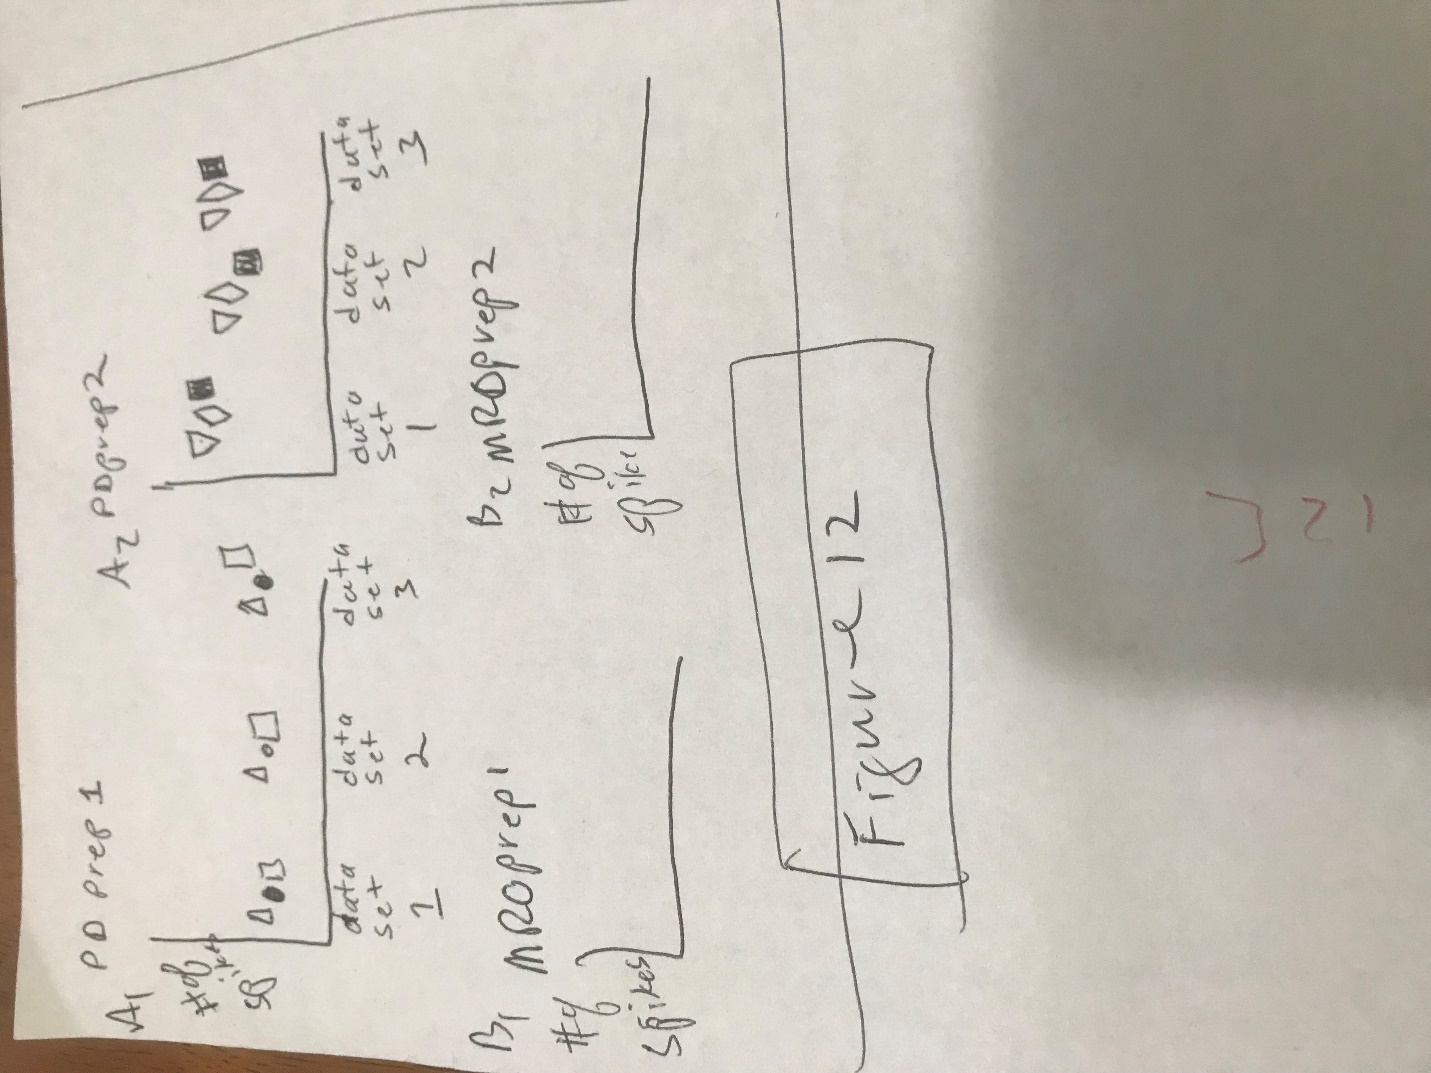 A1 PD prep 1
# of
spikes
data set 1
data set 2
data set 3
A2 PD prep 2
data set 1
data set 2
data set 3
B1 MRO prep 1
# of
spikes
B2 MRO prep 2
# of
spikes
Figure 12